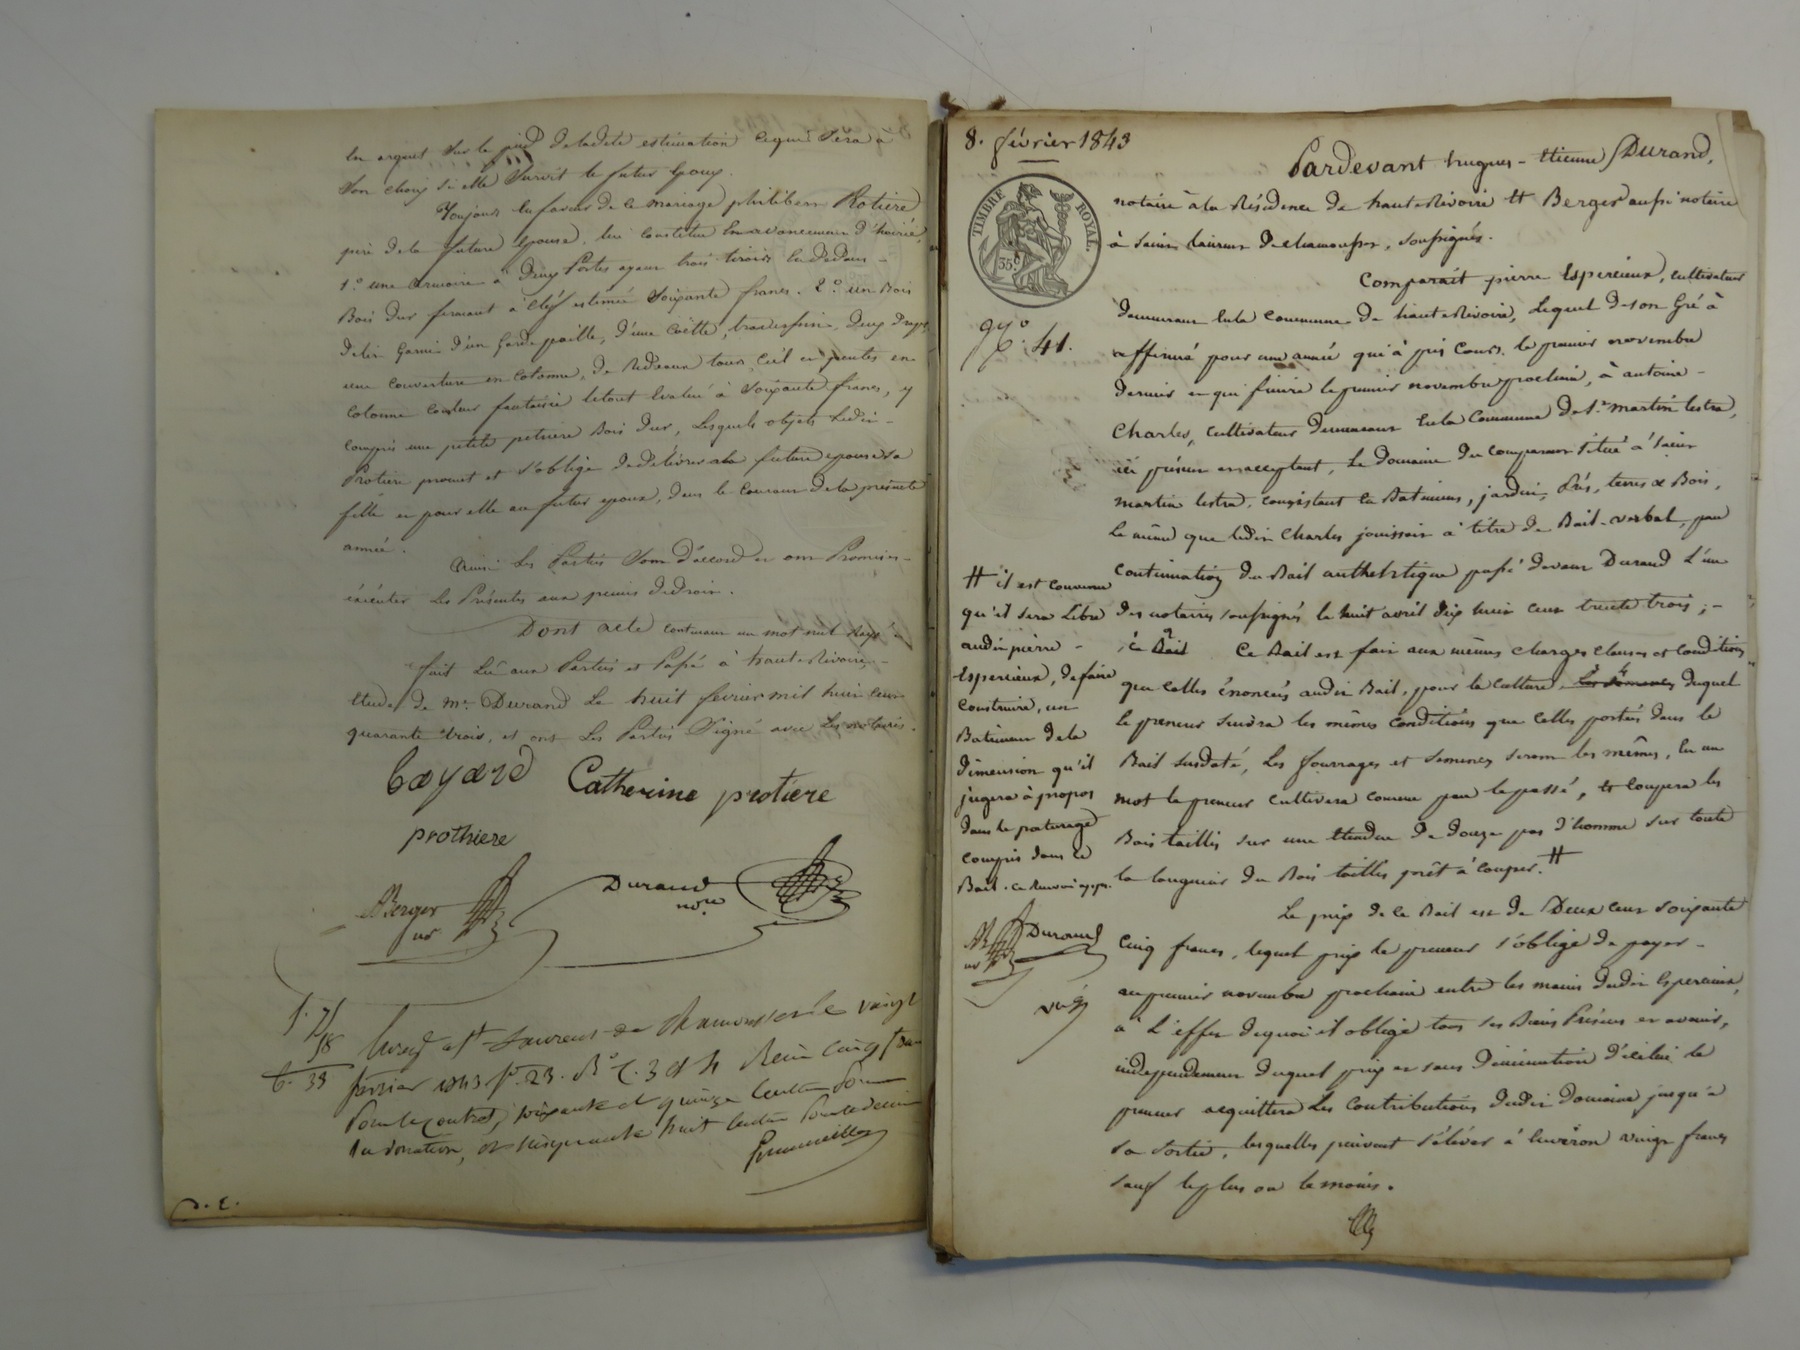 en argent sur le pied de ladite estimation ce qui sera à
son choix si elle survit le futur epoux.
Toujours en faveur de ce mariage philibert Protiere
père de la future epouse, lui constitue en avancement d'hoirie,
1.º une armoire à deux Portes ayant trois tiroirs en dedans
Bois dur fermant à clef estimée soixante francs. 2.º un Bois
de lit Garni d'un Garde paille, d'une Coëtte, traversin, deux draps,
une couverture en Cotonne, de Rideaux tour, ciel et pentes en
cotonne couleur fantaisie le tout Evalué à soixante francs, y
compris une petite petriere Bois dur, Lesquels objets Ledit
Protiere promet et s'oblige de delivrer a la future epouse sa
fille et pour elle au futur epoux, dans le Courant de la présente
année.
Ainsi les Parties sont d'accord et ont Promis
éxécuter les Présentes aux peines de Droit.
Dont acte contenant un mot nul rayé
fait Lu aux Parties et Passé à haute Rivoire
Etude de Me. Durand Le huit fevrier mil huit cent
quarante trois, et ont les Parties Signé avec les notaires.
Bayard Catherine protiere
prothiere
Berger nre
Durand nore
f. 5
Enreg. a St Laurent de Chamousset le vingt
6. 33
février 1843 fo. 23. Ro C. 3 et 4 Reçu cinq francs
Pour le contrat, soixante et quinze Centimes Pour
la donation, et cinquante huit Centimes Pour le decime
8. février 1843
TIMBRE ROYAL.
35c
Pardevant hugues-Etienne Durand,
notaire à la Résidence de haute Rivoire et Berger aussi notaire
à Saint Laurent de chamousset, soussignés.
Comparait pierre Espercieux, cultivateur
No. 41.
demeurant en la Commune de haute Rivoire, Lequel de son Gré à
affermé pour une année qui à pris Cours le premier novembre
dernier et qui finira le premier novembre prochain, à antoine
Charles, cultivateur demeurant en la Commune de St. martin lestra,
ici présent et acceptant, Le domaine du comparant situé à Saint
martin lestra, consistant en Batiments, jardin, Prés, terres et Bois,
le même que ledit Charles jouissait à titre de Bail verbal, par
continuation du Bail authehtique passé devant Durand L'un
des notaires soussignés le huit avril dix huit cent trente trois ;
ce Bail Ce Bail est fait aux mêmes charges clauses et conditions
que celles énoncées audit Bail, pour la culture les semences duquel
le preneur suivra les mêmes conditions que celles portées dans le
Bail susdaté, Les fourrages et semences seront les mêmes, En un
mot le preneur cultivera comme par le passé, et coupera les
Bois taillis sur une Etendue de douze pas d'homme sur toute
la longueur du Bois taillis prêt à couper. #
# il est convenu
qu'il sera Libre
audit pierre
Espercieux, de faire
construire, un
Batiment de la
dimension qu'il
jugera à propos
dans le paturage
compris dans ce
Bail. Ce Renvoi app.
Durand
Le prix de ce Bail est de Deux cent soixante
Cinq francs, lequel prix le preneur s'oblige de payer
au premier novembre prochain entre les mains dudit Espercieux,
à l'effet de quoi il oblige tous ses Biens Présents et avenir,
independament duquel prix et sans diminution d'icelui le
preneur acquittera les contributions dudit domaine jusqu'à
sa sortie, lesquelles peuvent s'élever à Environ vingt francs
sauf le plus ou le moins.